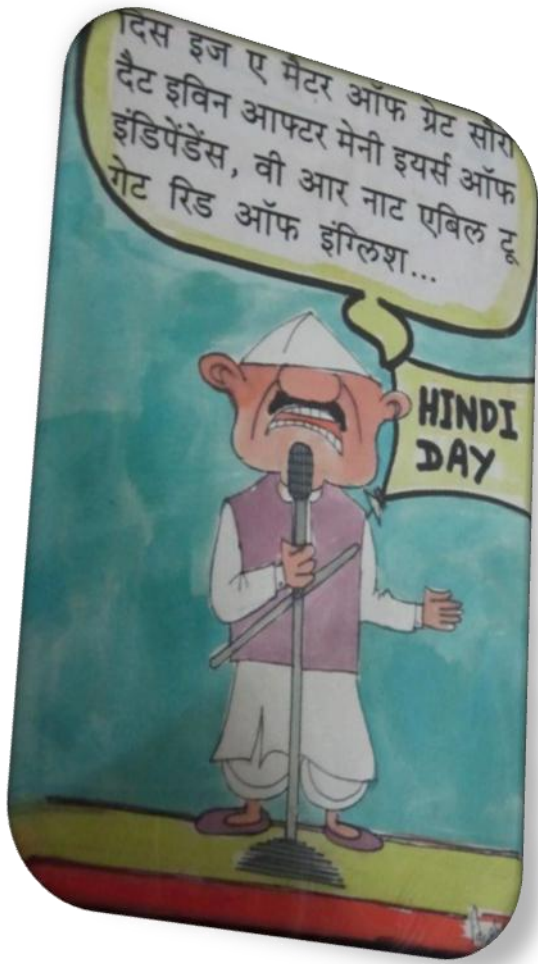 दिस इज ए मैटर ऑफ ग्रेट सौरो
दैट इविन आफ्टर मेनी इयर्स ऑफ
इंडिपेंडेंस, वी आर नाट एबिल टू
गेट रिड ऑफ इंग्लिश...
HINDI
DAY